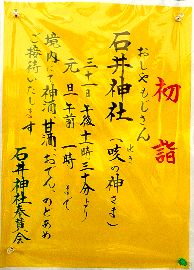 初詣
おしゃもじさん
石井神社(咳の神さま)
せき
三十一日午後十一時三十分より
元旦午前一時まで
境内にて神酒甘酒おでん、のどあめ
ご接待いたします
石井神社奉賛会